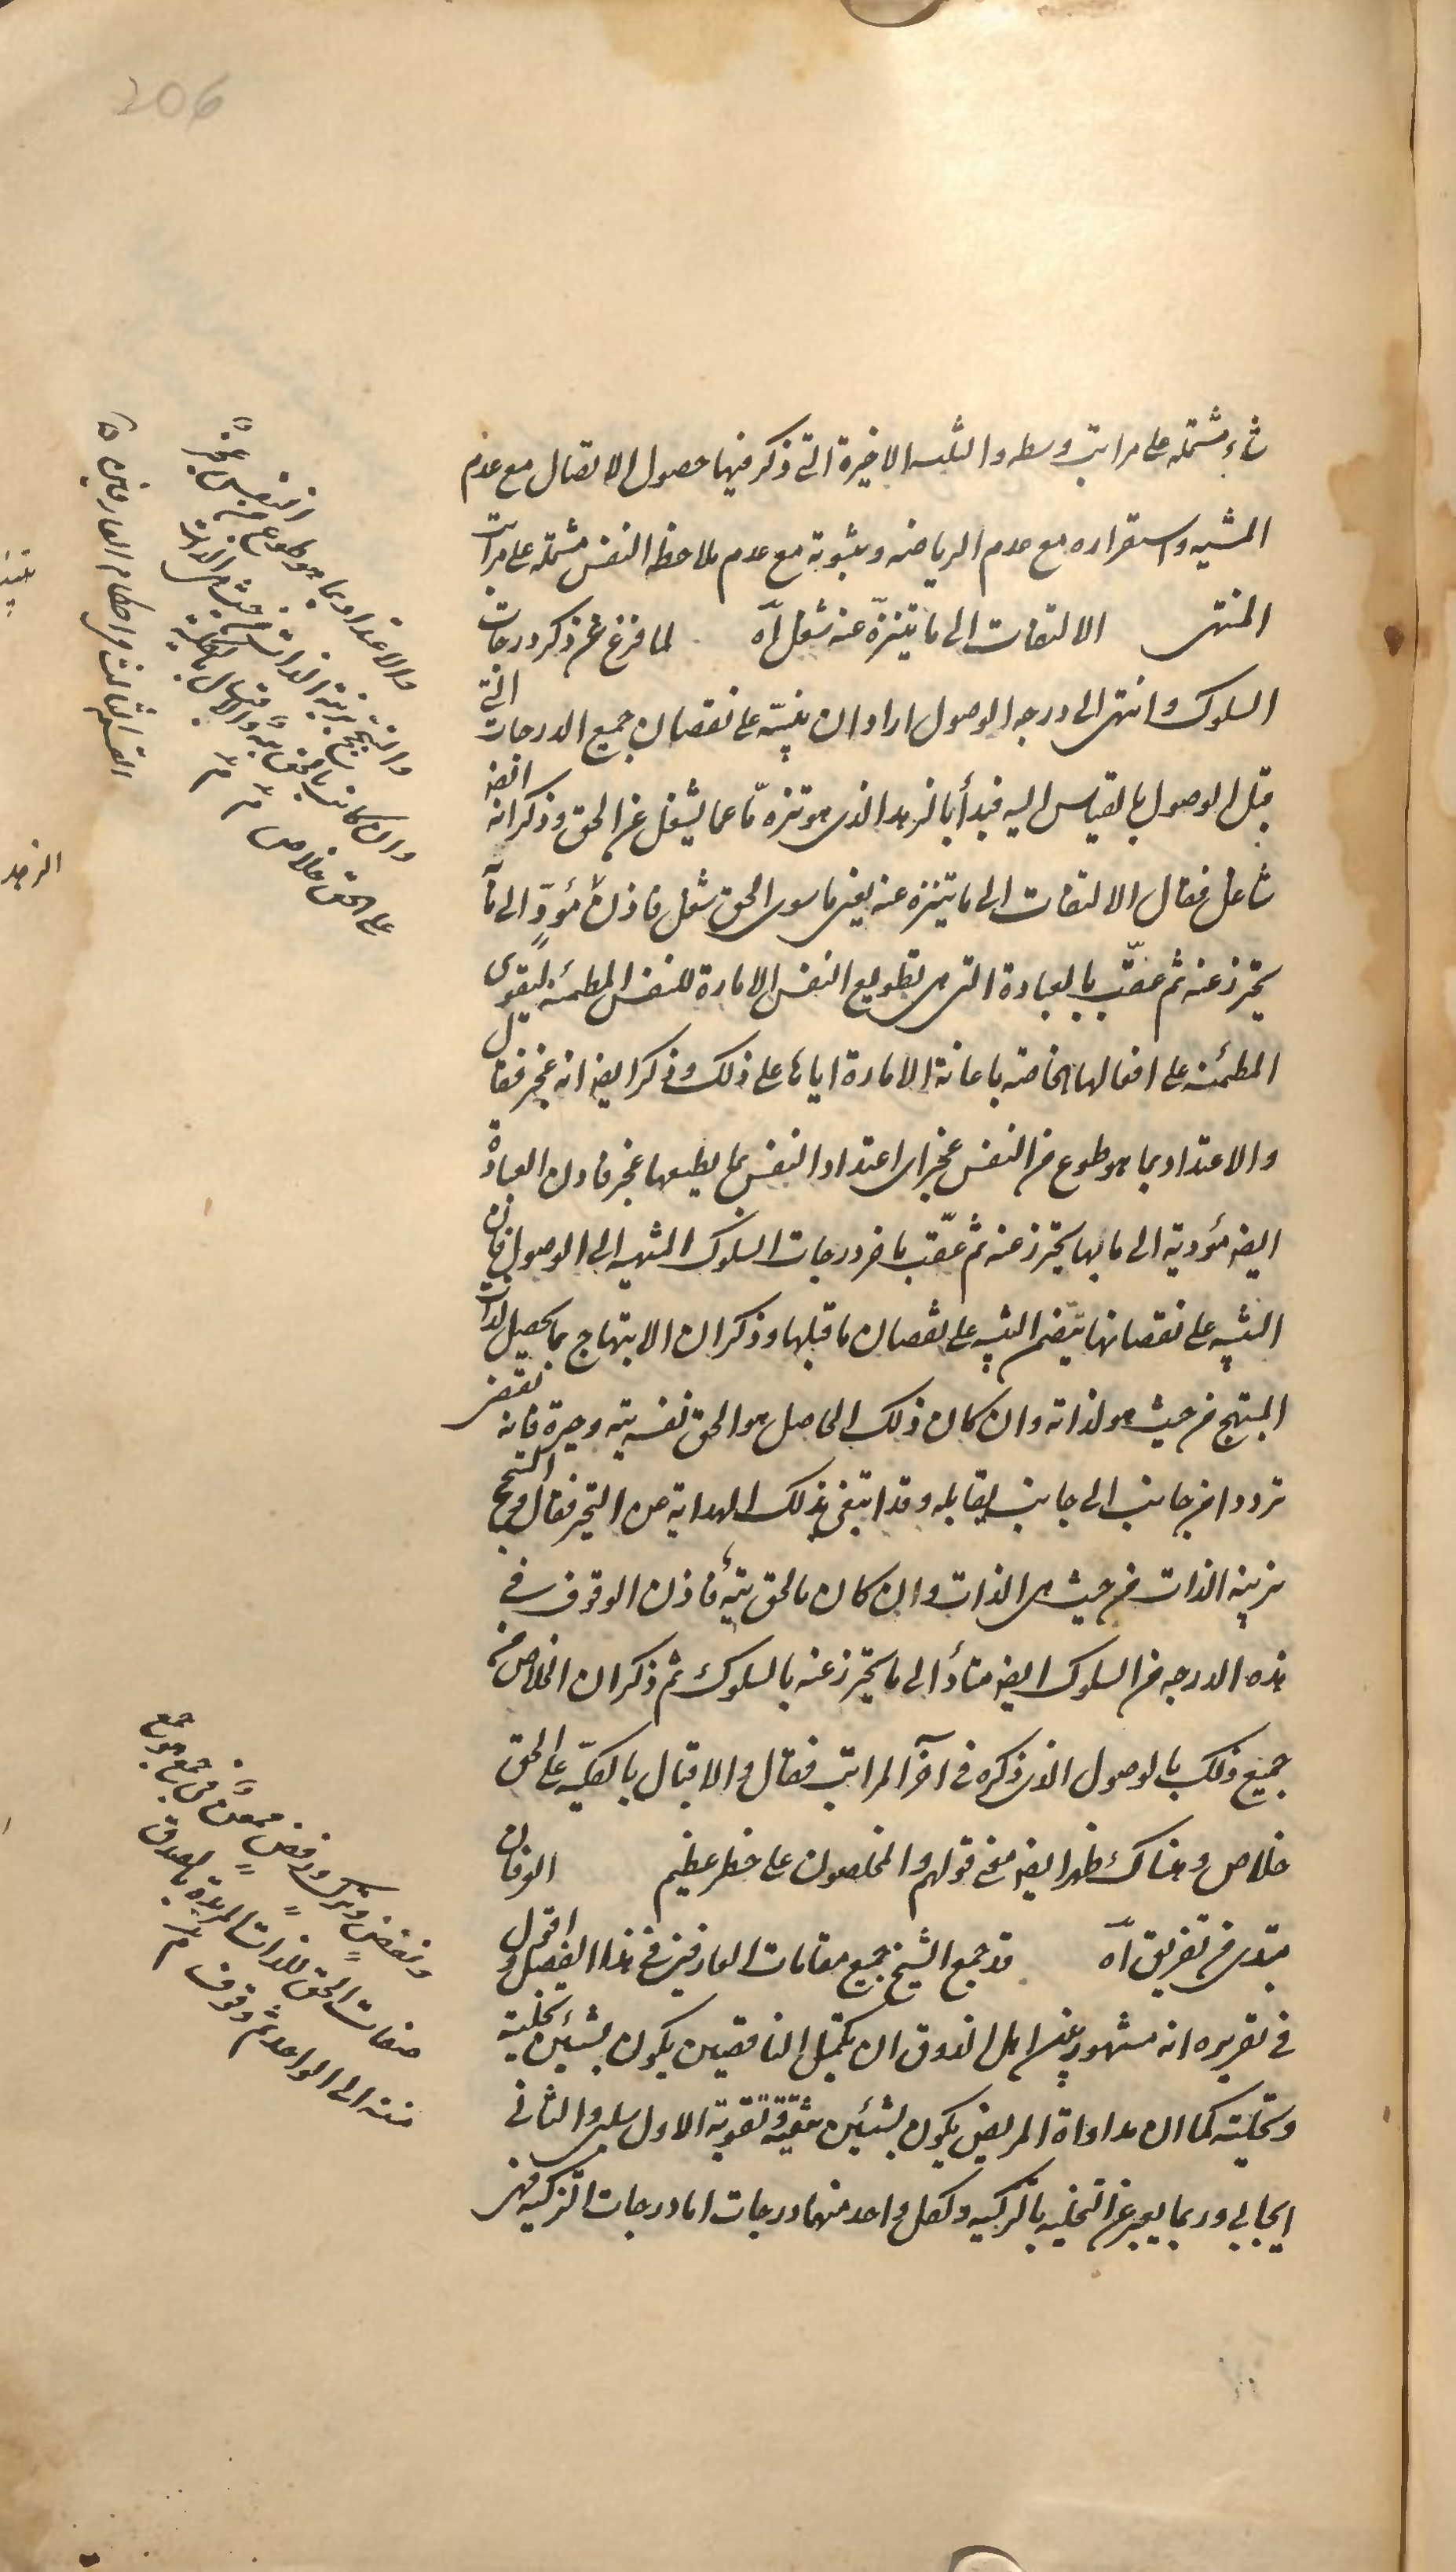 206
شاء مشتملة على مراتب وسطه والثلثه الاخيرة التى ذكر فيها حصول الاتصال مع عدم
المشيه واستقراره مع عدم الرياضه وثبوته مع عدم ملاحظه النفس مشتمله على مراتب
المنتهى الالتفات الى ما يتنزّه عنه شغل آه لما فرغ عن ذكر درجات
السلوك وانتهى الى درجه الوصول اراد ان ينبّه على نقصان جميع الدرجات التى
قبل الوصول بالقياس اليه فبدأ بالزهد الذى هو تنزه مّا عما يشغل عن الحق وذكر انه ايضا
شاغل فقال الالتفات الى ما يتنزه عنه يعنى ما سوى الحق شغل فاذن مؤدّ الى ما
يحترز عنه ثم عقّب بالعبادة التى هى تطويع النفس الامارة للنفس المطمئنه ليقوى
المطمئنه على افعالها الخاصه باعانة الامارة اياها على ذلك وذكر ايض انه عجز فقال
والاعتداد بما هو طوع من النفس عجز اى اعتداد النفس بما يطيعها عجز فاذن العبادة
ايض مؤدية الى ما بها يحترز عنه ثم عقّب باخر درجات السلوك المنتهيه الى الوصول فان
التنبيه على نقصانها يتضمن التنبيه على نقصان ما قبلها وذكر ان الابتهاج بما يحصل لذات
المبتهج من حيث هو لذاته وان كان ذلك الحاصل هو الحق نفسه تيه وحيرة فانه يقتضى
ترددا من جانب الى جانب يقابله وقد ابتغى بذلك الهداية من التحير فقال والتبجح
بزينة الذات من حيث هى الذات وان كان بالحق تيه فاذن الوقوف فى
هذه الدرجه من السلوك ايض متأد الى ما يحترز عنه بالسلوك ثم ذكر ان الخلاص من
جميع ذلك بالوصول الذى ذكره فى آخر المراتب فقال والاقبال بالكليّه على الحق
خلاص وهناك ظهر ايض معنى قولهم والمخلصون على خطر عظيم العرفان
مبتدى من تفريق آه قد جمع الشيخ جميع مقامات العارفين فى هذا الفصل واقول
فى تقريره انه مشهور بين اهل الذوق ان تكميل الناقصين يكون بشيئين تخليه
وتحليته كما ان مداواة المريض يكون بشيئين تنقية وتقوية الاول سلبى والثانى
ايجابى وربما يعبر عن التخليه بالتزكيه ولكل واحد منهما درجات اما درجات التزكيه فهى
والاعتداد بما هو طوع من النفس عجز
والتبجح بزينة الذات من حيث هى الذات
وان كانت بالحق تيه والاقبال بالكلية
على الحق خلاص
ونفض وترك ورفض ممعن فى جمع هو جمع
صفات الحق للذات المريدة بالصدق
منته الى الواحد ثم وقوف